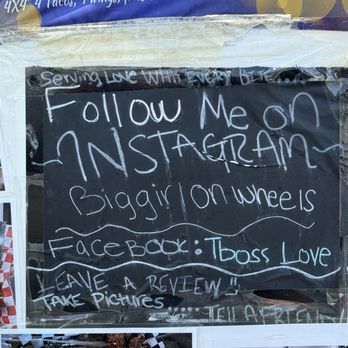 4x4" 4 Tacos, 4 Wings,
Serving Love With Every Bite....
Follow Me on
~INSTAGRAM~
Biggirlonwheels
FaceBook: Tboss Love
LEAVE A REVIEW!!
TAKE Pictures..... TELL A FRIEND